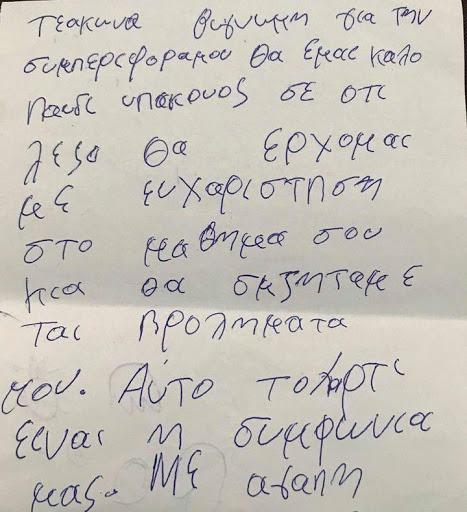 τεακωνα θυγνωμη για την
συμπεριφοραμου θα εμαε καλο
παιδι υπακουος σε οτι
λεςο θα ερχομαε
με ευχαριστηση
στο μαθημα σου
κια θα σηζηταμε
ται προλημματα
μου. Αύτο τοχαρτι
ειναι η συμφωνια
μας. ΜΕ αγαπη